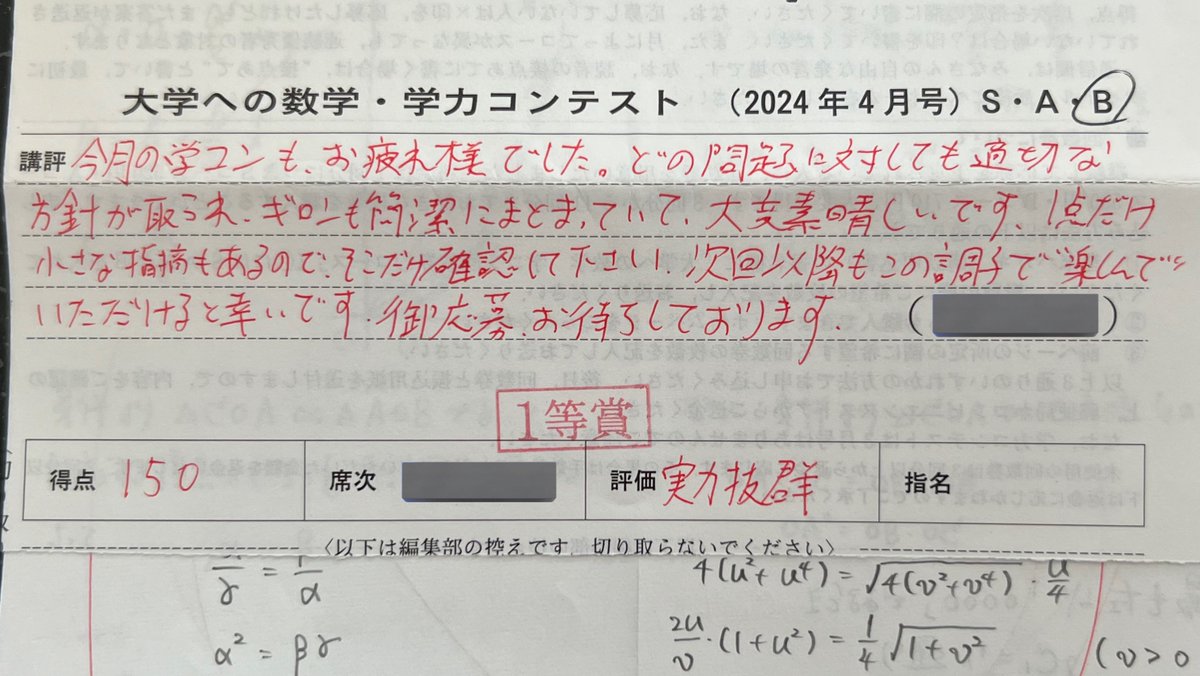 大学への数学・学力コンテスト (2024年4月号) S・A・B
講評 今月の学コンも、お疲れ様でした。どの問題に対しても適切な
方針が取られ、ギロンも簡潔にまとまっていて、大変素晴しいです。1点だけ
小さな指摘もあるのでそこだけ確認して下さい。次回以降もこの調子で楽しんで
いただけると幸いです。御応募、お待ちしております。 ( )
1等賞
得点 150 席次 評価 実力抜群 指名
〈以下は編集部の控えです 切り取らないでください〉
γ = α
α² = βγ
4(u²+u⁴) = √4(v²+v⁴) · u/4
2u/v · (1+u²) = 1/4 √1+v² (v>0